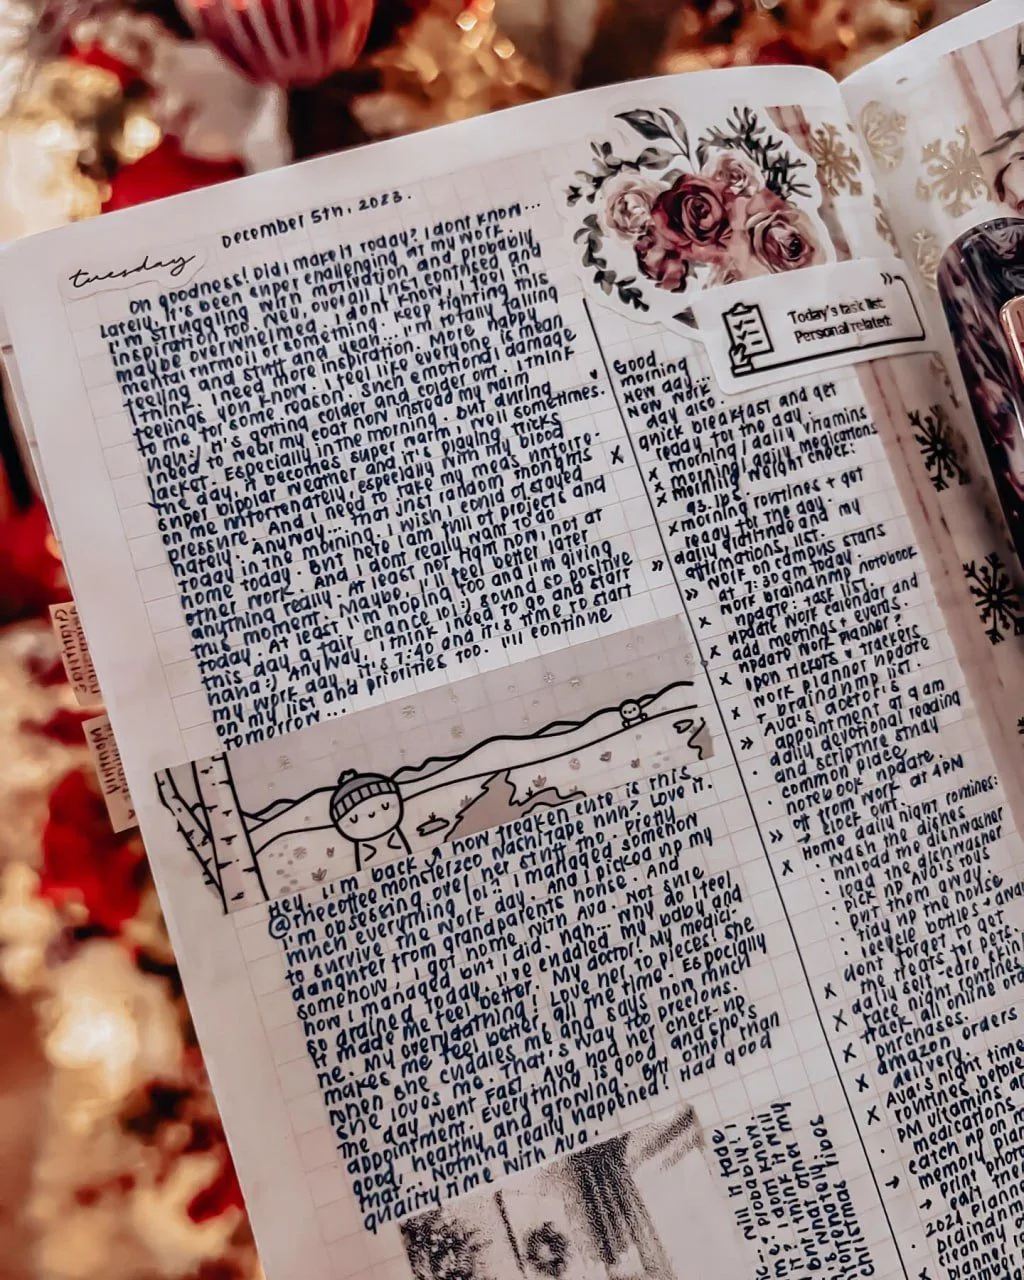 tuesday
December 5th, 2023.
Oh goodness! Did I make it today? I dont know...
Lately, it's been super challenging at my work.
I'm struggling with motivation and probably
inspiration too. Well, overall, Just confused and
maybe overwhelmed. I dont know. I feel in
mental turmoil or something. Keep fighting this
feeling and stuff and yeah... I'm totally falling
I think. I need more inspiration. More happy
feelings you know. I feel like everyone is mean
to me for some reason. Such emotional damage
huh;) It's getting colder and colder out. I think
I need to wear my coat now instead my warm
jacket. Especially in the morning. But during
the day, it becomes super warm, well sometimes.
super bipolar weather and it's playing tricks
on me unfortunately, especially with my blood
pressure. And I need to take my meds unfortu-
nately. Anyway... that Just random thoughts
today in the morning. I wish I could of stayed
home today. But here I am full of projects and
other work. And I dont really want to do
anything really. At least not right now, not at
this moment. Maybe I'll feel better later
today. At least I'm hoping too and I'm giving
this day a fair chance lol;) sound so positive
haha:) Anyway, I think I need to go and start
my work day. It's 7:40 and it's time to start
on my list and priorities too. I'll continue
tomorrow...
Hey, I'm back, how freaken cute is this,
@thecoffeemonsterzco washitape huh? Love it.
I'm obsessing over her stuff tho. Pretty
much everything lol? I managed somehow
to survive the work day. And I picked up my
daughter from grandparents house. And
somehow, I got home with Ava. Not sure
how I managed but I did. Hah... why do I feel
so drained today. I've cuddled my baby and
it made me feel better. My doctor! My medici-
ne. My everydathing! Love her to pieces. She
makes me feel better all the time. Especially
when she cuddles me and says how much
she loves me. That's way too precious.
The day went fast, Ava had her check-up
appointment. Everything is good and she's
good, healthy and growing. But other than
that... Nothing really happened! Had good
quality time with Ava.
Today's task list:
Personal related:
Good
morning
new day...
New work
day also.
quick breakfast and get
ready for the day.
x morning / daily vitamins
x morning / daily medications
x morning weight check:
93. lbs.
x morning routines + get
ready for the day.
daily gratitude and my
affirmations list.
» work on campus starts
at 7:30 am today.
» work braindump notebook
update: task list.
x update work calendar and
add meetings + events.
x update work planner?
x open tickets + trackers
x work planner update
+ braindump list.
» Ava's doctoris 9 am
appointment at
· daily devotional reading
and scripture study
· common place
notebook update.
» off from work at 4PM
→ clock out.
x Home daily night routines:
· wash the dishes
· unload the dishwasher
· load the dishwasher
· pick up Ava's toys
put them away.
· tidy up the house
· recycle bottles +
x dont forget to get
the treats for pets.
x daily self-care skin
face night routines
x track all online
purchases.
x amazon orders
delivery.
x Ava's night time
routines before
· PM vitamins
medications.
· catch up on
memory plan
→ print photo
→
· 2024 planner
braindump
· clean my
planner